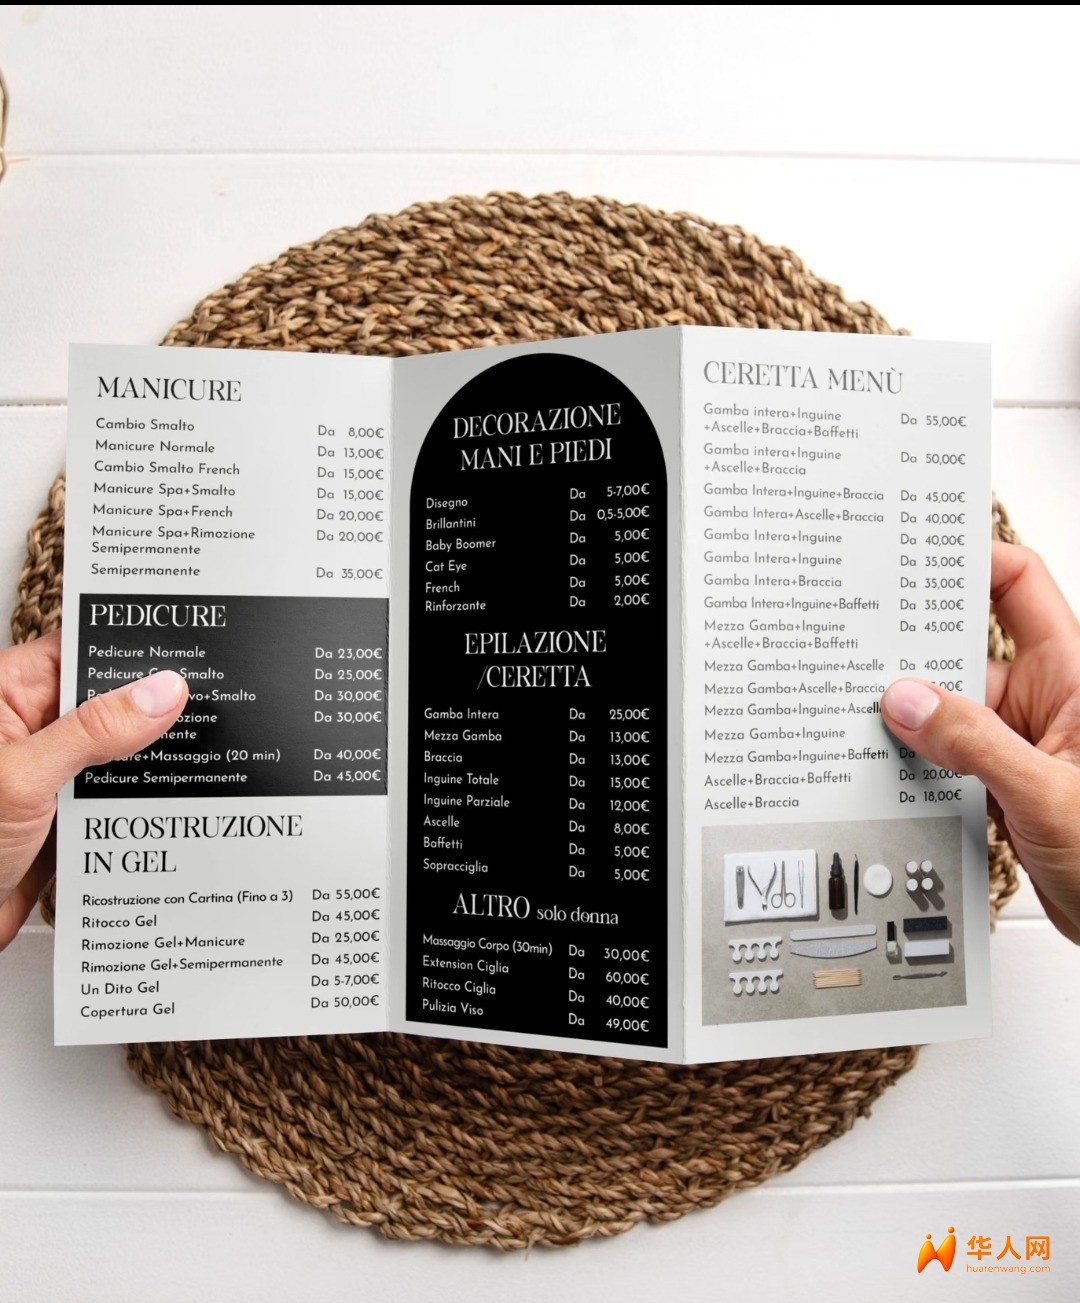 MANICURE
Cambio Smalto Da 8,00€
Manicure Normale Da 13,00€
Cambio Smalto French Da 15,00€
Manicure Spa+Smalto Da 15,00€
Manicure Spa+French Da 20,00€
Manicure Spa+Rimozione Da 20,00€
Semipermanente
Semipermanente Da 35,00€
PEDICURE
Pedicure Normale Da 23,00€
Pedicure Smalto Da 25,00€
vo+Smalto Da 30,00€
ozione Da 30,00€
nente
+Massaggio (20 min) Da 40,00€
Pedicure Semipermanente Da 45,00€
RICOSTRUZIONE
IN GEL
Ricostruzione con Cartina (Fino a 3) Da 55,00€
Ritocco Gel Da 45,00€
Rimozione Gel+Manicure Da 25,00€
Rimozione Gel+Semipermanente Da 45,00€
Un Dito Gel Da 5-7,00€
Copertura Gel Da 50,00€
DECORAZIONE
MANI E PIEDI
Disegno Da 5-7,00€
Brillantini Da 0,5-5,00€
Baby Boomer Da 5,00€
Cat Eye Da 5,00€
French Da 5,00€
Rinforzante Da 2,00€
EPILAZIONE
/CERETTA
Gamba Intera Da 25,00€
Mezza Gamba Da 13,00€
Braccia Da 13,00€
Inguine Totale Da 15,00€
Inguine Parziale Da 12,00€
Ascelle Da 8,00€
Baffetti Da 5,00€
Sopracciglia Da 5,00€
ALTRO solo donna
Massaggio Corpo (30min) Da 30,00€
Extension Ciglia Da 60,00€
Ritocco Ciglia Da 40,00€
Pulizia Viso Da 49,00€
CERETTA MENÙ
Gamba intera+Inguine Da 55,00€
+Ascelle+Braccia+Baffetti
Gamba intera+Inguine Da 50,00€
+Ascelle+Braccia
Gamba Intera+Inguine+Braccia Da 45,00€
Gamba Intera+Ascelle+Braccia Da 40,00€
Gamba Intera+Inguine Da 40,00€
Gamba Intera+Inguine Da 35,00€
Gamba Intera+Braccia Da 35,00€
Gamba Intera+Inguine+Baffetti Da 35,00€
Mezza Gamba+Inguine Da 45,00€
+Ascelle+Braccia+Baffetti
Mezza Gamba+Inguine+Ascelle Da 40,00€
Mezza Gamba+Ascelle+Braccia 00€
Mezza Gamba+Inguine+Ascelle
Mezza Gamba+Inguine
Mezza Gamba+Inguine+Baffetti Da
Ascelle+Braccia+Baffetti Da 20,00€
Ascelle+Braccia Da 18,00€
华人网
huarenwang.com